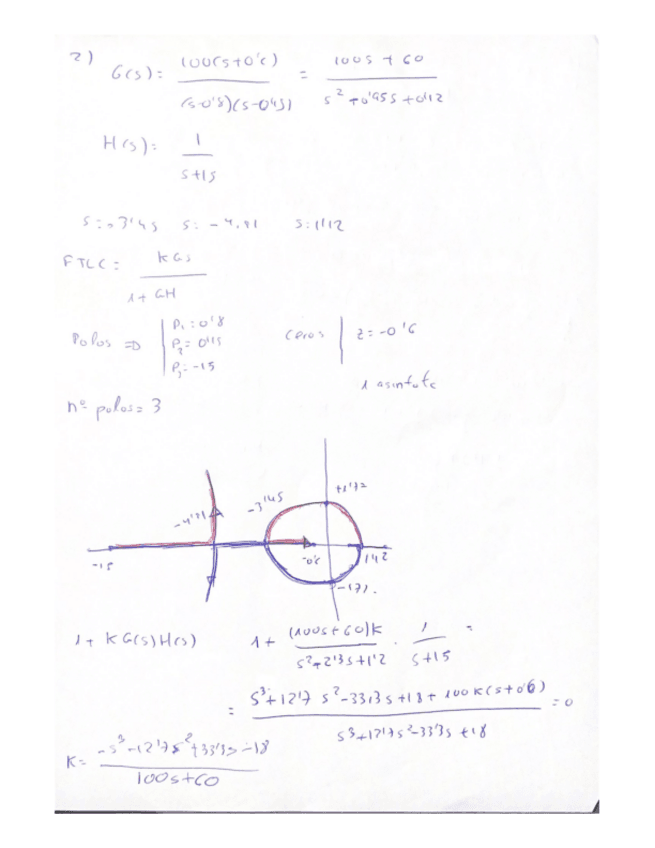 2)
G(s): 100(s+0'6) / (s-0'8)(s-0'15) = 100s + 60 / s² + 0'95s + 0'12
H(s): 1 / s+15
s: -3'45 s: -4.91 s: 1'12
FTLC: KGs / 1+ GH
Polos ⇒ P₁: 0'8
P₂= 0'15
P₃: -15
ceros z: -0'6
1 asintota
nº polos= 3
-3'45
-15
-0'6
142
1+ K G(s)H(s) 1+ (100s+60)K / s²+2'3s+1'2 · 1 / s+15 =
= s³+12'7 s²-33'3s+18+ 100K(s+0'6) / s³+12'7s²-33'3s+18 = 0
K= -s³-12'7s²+33'3s-18 / 100s+60